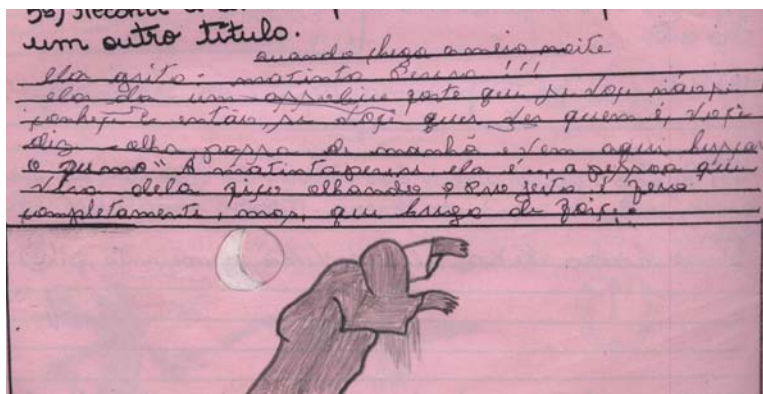 5a) Reconte a
um outro título.
quando chega a meia noite
ela grita - matinta Perera !!!
ela da um assobiu forte que se voçe não
conheçe e então, se voçe quer ver quem é, voçe
diz - olha, passa de manhã e vem aqui buscar
o fumo" A matinta perera ela é... a pessoa que
vira dela fica olhando o seu jeito é
completamente, mas, que